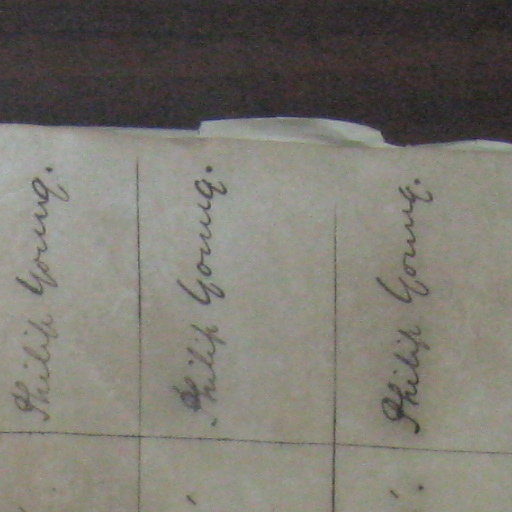 Philip Young.
Philip Young.
Philip Young.